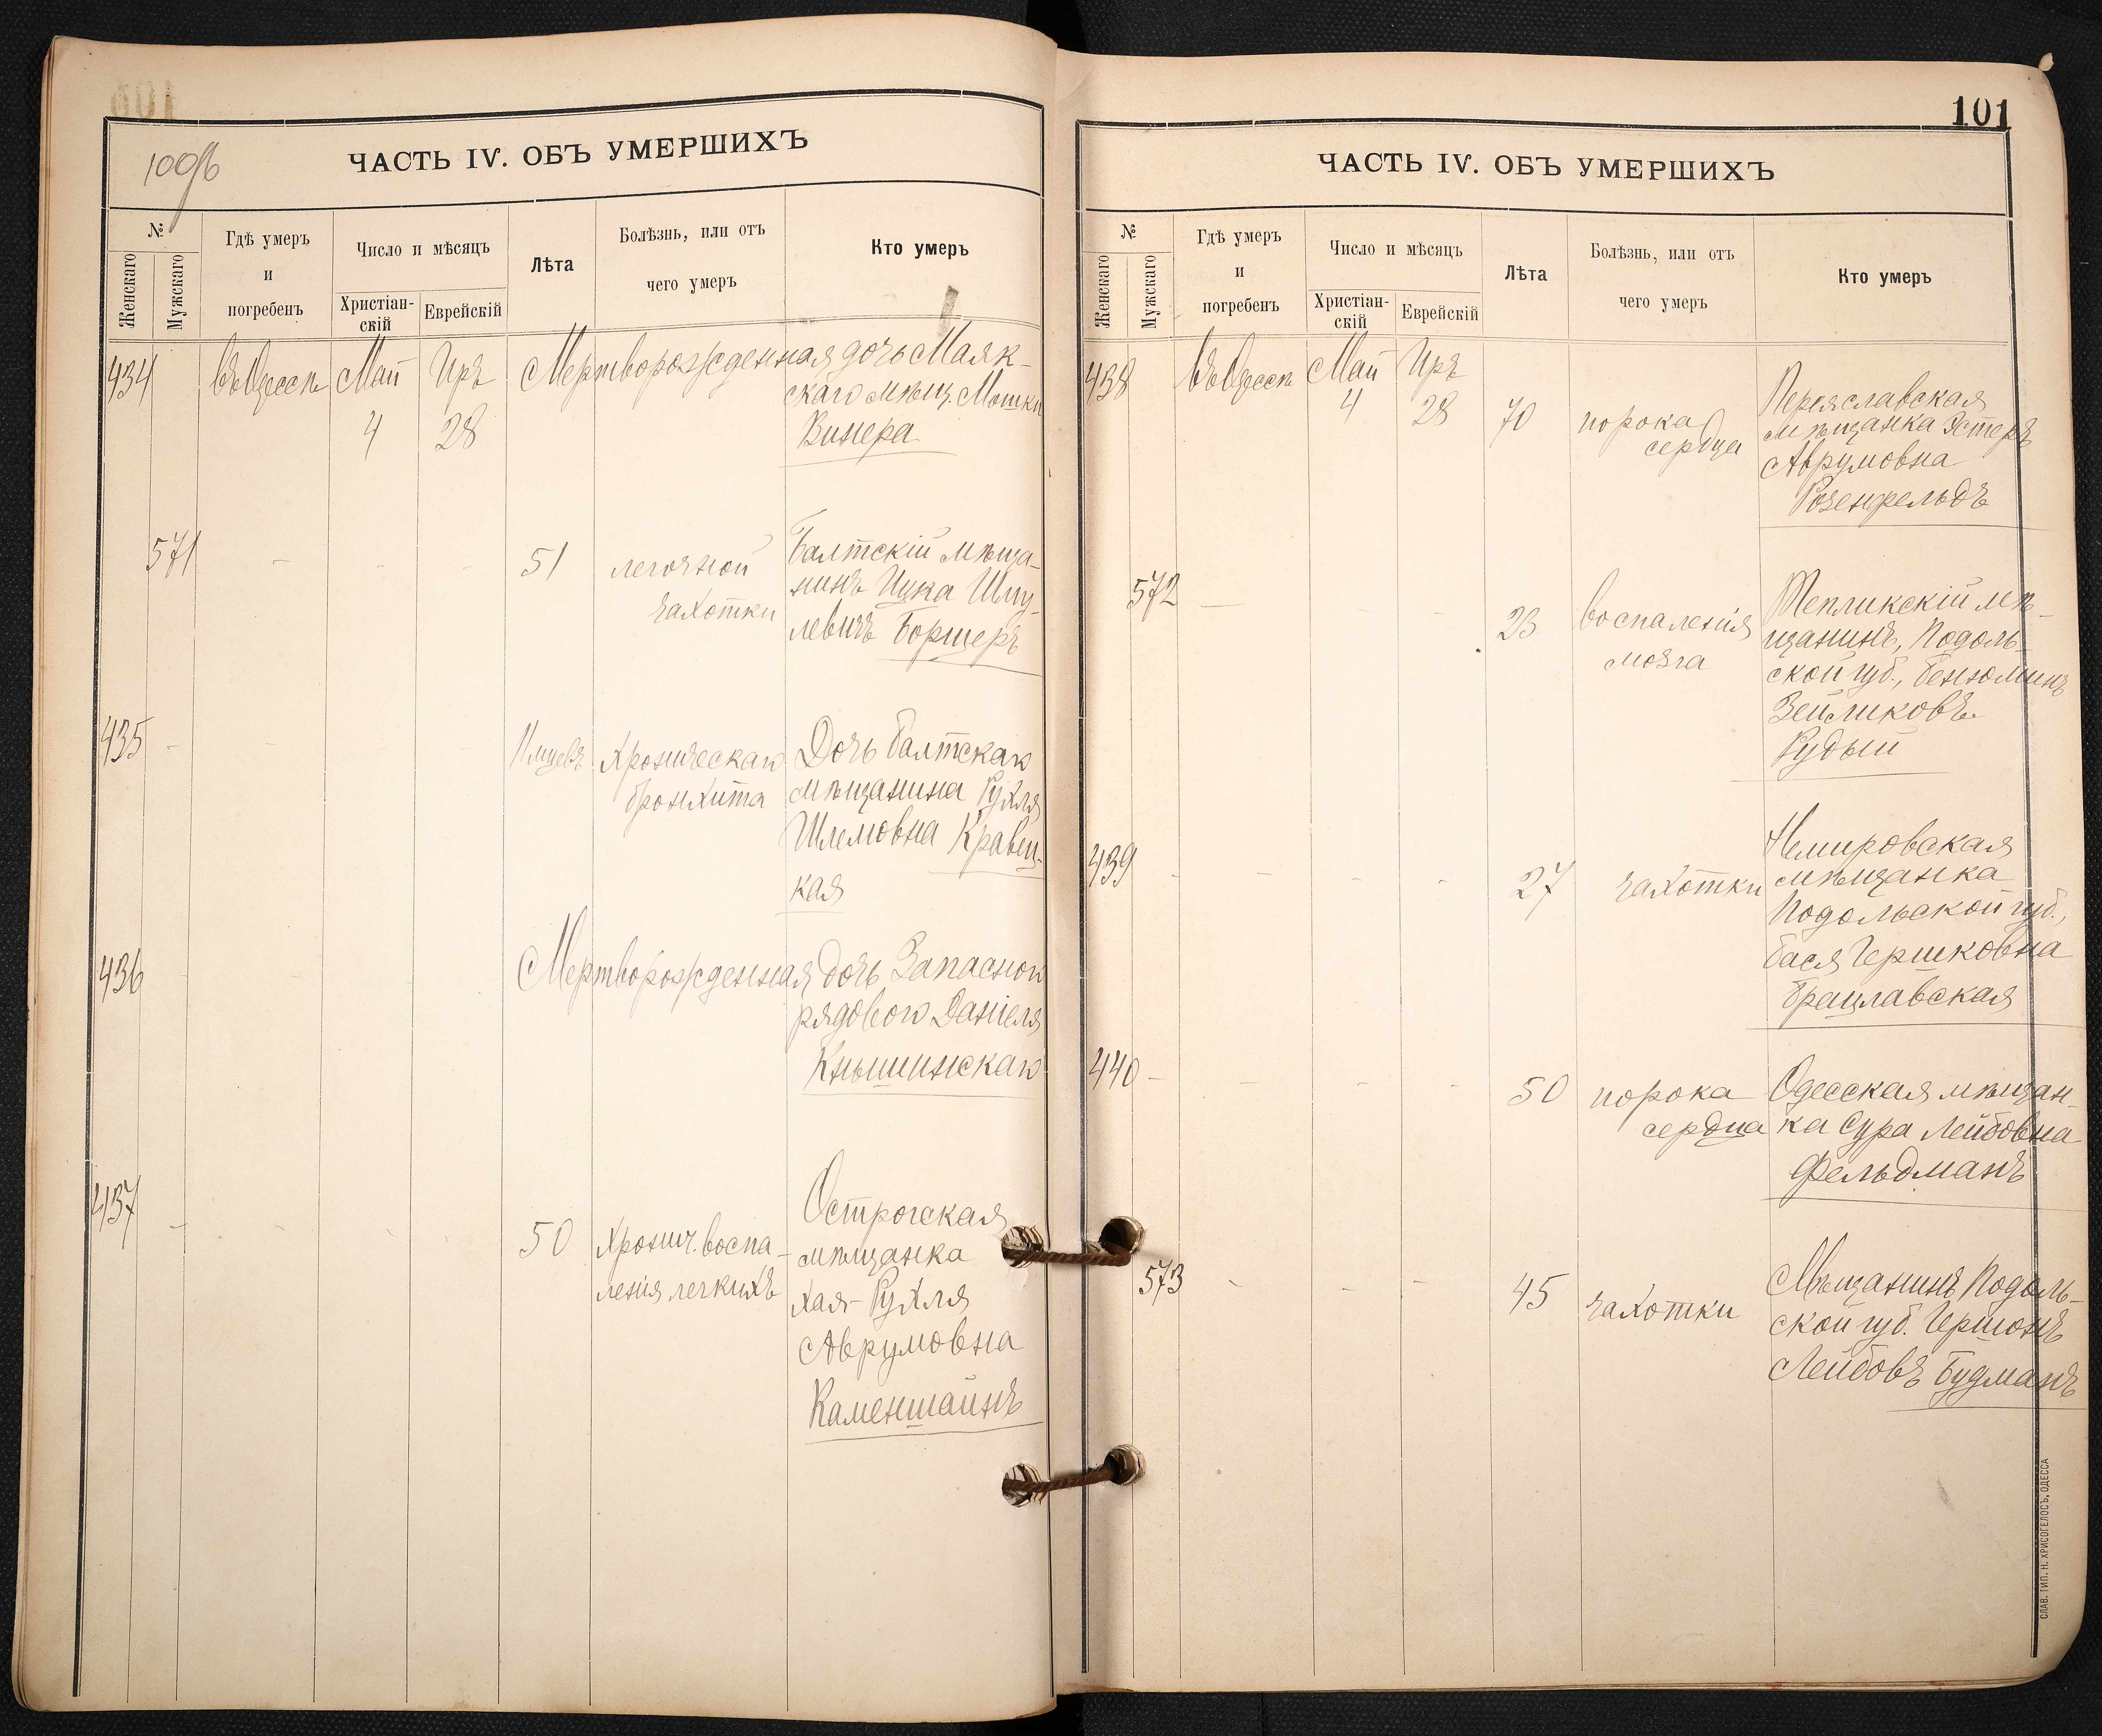 100об
ЧАСТЬ IV. ОБЪ УМЕРШИХЪ
№
Женскаго
Мужскаго
Гдѣ умеръ
и
погребенъ
Число и мѣсяцъ
Христіан-
скій
Еврейскій
Лѣта
Болѣзнь, или отъ
чего умеръ
Кто умеръ
434 въ Одессѣ Май Иръ Мертворожденная дочь Маяк-
скаго мѣщ. Мошки
4 28 Винера
571 - - - 51 легочной Балтскій мѣща-
чахотки нинъ Ицка Шму-
левичъ Боршеръ
435 - - - - 11 мцевъ Хроническаго Дочь Балтскаго
бронхита мѣщанина Рухля
Шлемовна Кравец-
кая
436 - - - - Мертворожденная дочь Запаснаго
рядового Даніеля
Кнышинскаго
437 - - - - 50 Хронич. воспа- Острогская
ленія легкихъ мѣщанка
Хая-Рухля
Аврумовна
Каменштайнъ
101
ЧАСТЬ IV. ОБЪ УМЕРШИХЪ
№
Женскаго
Мужскаго
Гдѣ умеръ
и
погребенъ
Число и мѣсяцъ
Христіан-
скій
Еврейскій
Лѣта
Болѣзнь, или отъ
чего умеръ
Кто умеръ
438 въ Одессѣ Май Иръ
4 28 70 порока Переяславская
сердца мѣщанка Эстеръ
Аврумовна
Розенфельдъ
572 - - - 23 воспаленія Тепликскій мѣ-
мозга щанинъ, Подоль-
ской губ., Бенюминъ
Зейликовъ
Рудый
439 - - - - 27 чахотки Немировская
мѣщанка
Подольской губ.,
Бася Гершковна
Брацлавская
440 - - - - 50 порока Одесская мѣщан-
сердца ка Сура Лейбовна
Фельдманъ
573 - - - 45 чахотки Мѣщанинъ Подоль-
ской губ. Гершонъ
Лейбовъ Будманъ
СЛАВ. ТИП. Н. ХРИСОГЕЛОСЪ, ОДЕССА